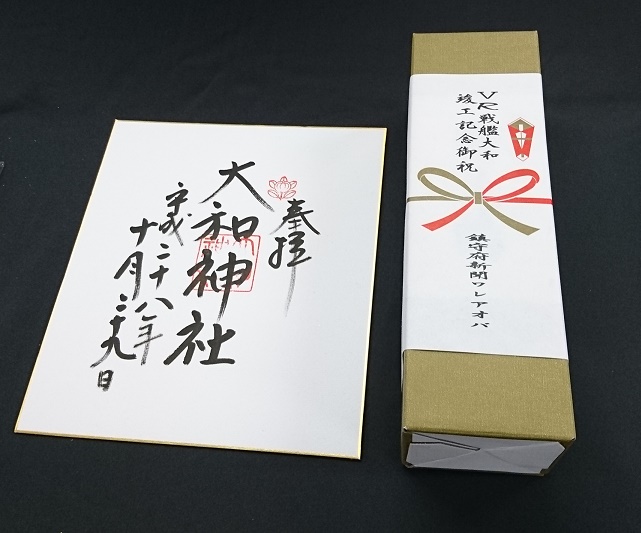 奉拝
大和神社
平成二十八年
十月二十九日
VR戦艦大和
竣工記念御祝
鎮守府新聞ワレアオバ